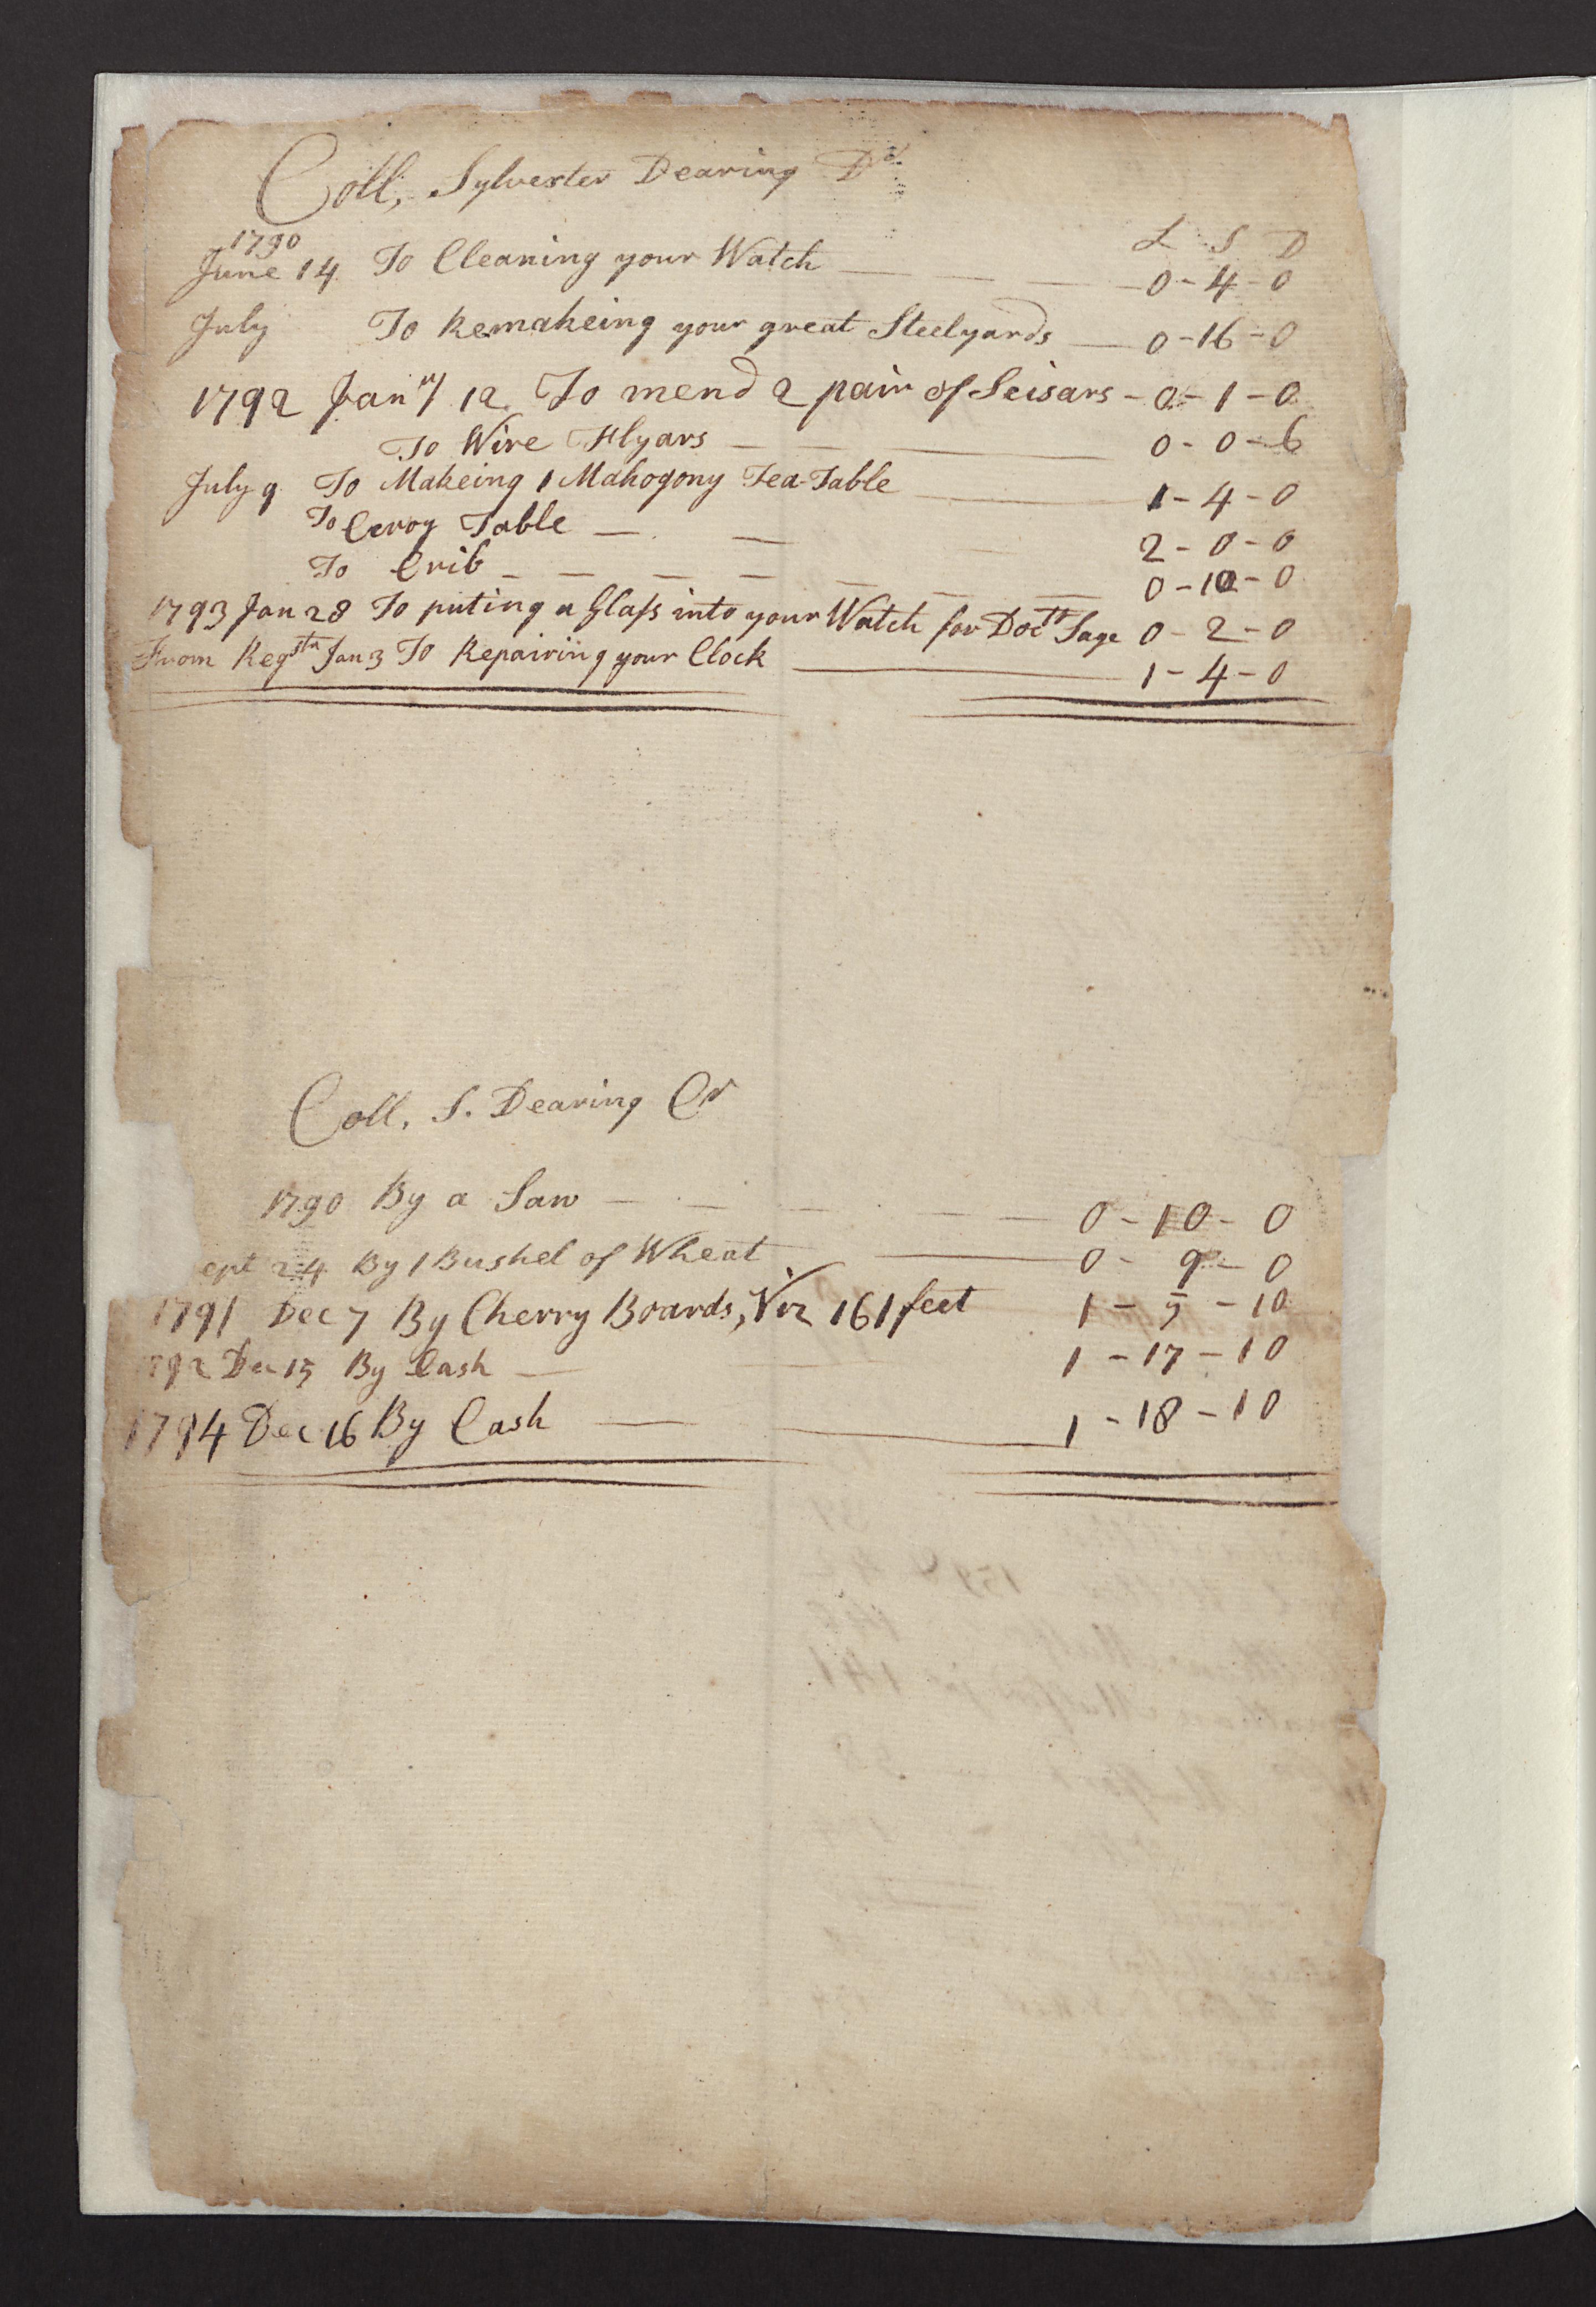 Coll, Sylvester Dearing Dr
1790 L S D
June 14 To Cleaning your Watch 0-4-0
July To Remakeing your great Steelyards 0-16-0
1792 Jany 12 To mend 2 pair of Scisars - 0-1-0
To Wire Flyars 0-0-6
July 9 To Makeing 1 Mahogony Tea-Table 1-4-0
To Table 2-0-0
To Crib 0-10-0
1793 Jan 28 To puting a Glass into your Watch for Doctr Sage 0-2-0
From Regstr Jan 3 To Repairing your Clock 1-4-0
Coll, S. Dearing Cr
1790 By a Saw 0-10-0
ept 24 By 1 Bushel of Wheat 0-9-0
1791 Dec 7 By Cherry Boards, Viz 161 feet 1-5-10
792 Dec 15 By Cash 1-17-10
1794 Dec 16 By Cash 1-18-10